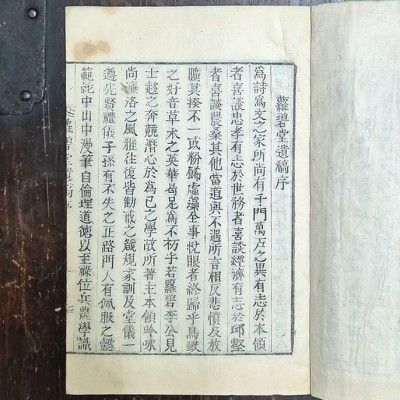 蘿碧堂遺稿序
爲詩爲文之家所尚有千門萬戶之異有志於本領
者喜談忠孝有志於世務者喜談經濟有志於邱壑
者喜談農桑其他當道與不遇所言相反悲憤與放
曠其揆不一或粉飾虛藻全事悅眼者終歸乎鳥獸
之好音草木之英華曷足爲不朽乎若蘿碧李公見
士趨之奔競潛心於爲己之學故所著主本領吟咏
尚濂洛之風雅往復皆勸戒之箴規家訓及堂儀一
遵先賢禮儀子孫有不失之正路門人有佩服之
範說中山中漫筆自倫理道德以至祿位兵農學識